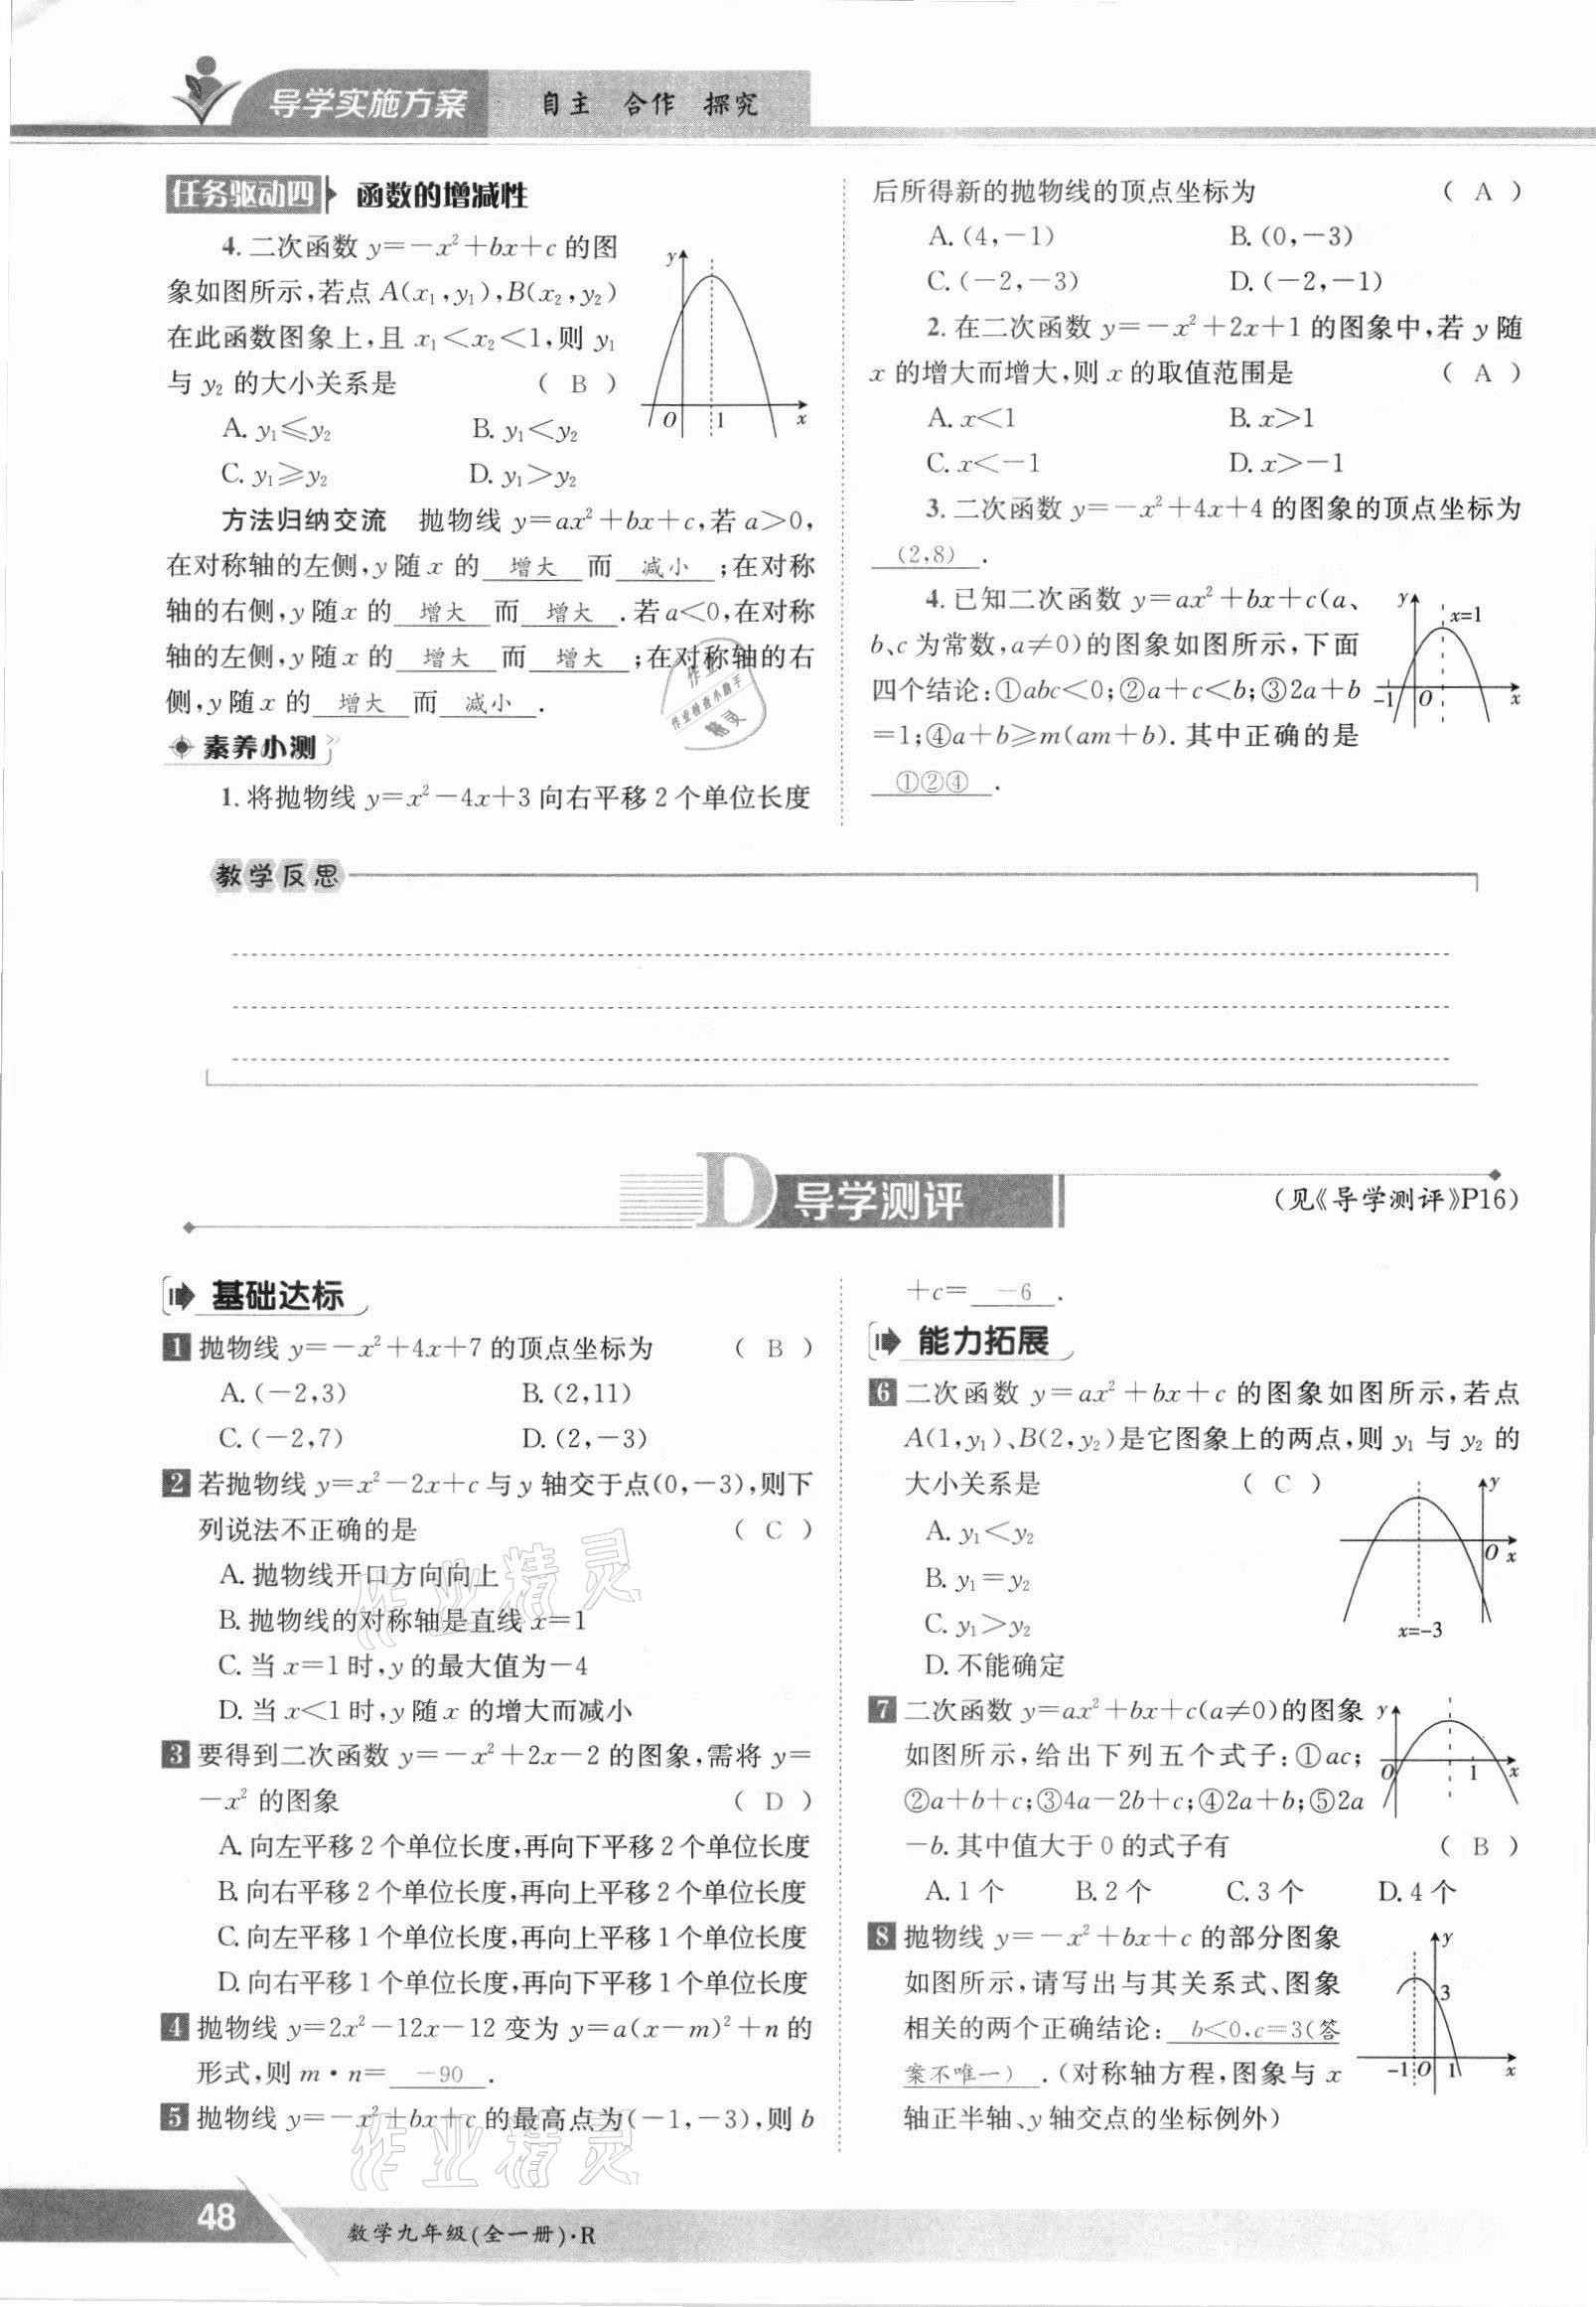 导学实施方案 自主 合作 探究
任务驱动四 函数的增减性
4. 二次函数 y=-x²+bx+c 的图
象如图所示,若点 A(x₁,y₁),B(x₂,y₂)
在此函数图象上,且 x₁<x₂<1,则 y₁
与 y₂ 的大小关系是 ( B )
A. y₁≤y₂ B. y₁<y₂
C. y₁≥y₂ D. y₁>y₂
y
O 1 x
方法归纳交流 抛物线 y=ax²+bx+c,若 a>0,
在对称轴的左侧,y 随 x 的 增大 而 减小 ;在对称
轴的右侧,y 随 x 的 增大 而 增大 .若 a<0,在对称
轴的左侧,y 随 x 的 增大 而 增大 ;在对称轴的右
侧,y 随 x 的 增大 而 减小 .
素养小测
1. 将抛物线 y=x²-4x+3 向右平移 2 个单位长度
后所得新的抛物线的顶点坐标为 ( A )
A. (4,-1) B. (0,-3)
C. (-2,-3) D. (-2,-1)
2. 在二次函数 y=-x²+2x+1 的图象中,若 y 随
x 的增大而增大,则 x 的取值范围是 ( A )
A. x<1 B. x>1
C. x<-1 D. x>-1
3. 二次函数 y=-x²+4x+4 的图象的顶点坐标为
(2,8) .
4. 已知二次函数 y=ax²+bx+c(a、
b、c 为常数,a≠0)的图象如图所示,下面
四个结论:①abc<0;②a+c<b;③2a+b
=1;④a+b≥m(am+b). 其中正确的是
①②④ .
y x=1
-1 O x
作业
作业检查小助手
精灵
教学反思
D 导学测评
(见《导学测评》P16)
基础达标
1 抛物线 y=-x²+4x+7 的顶点坐标为 ( B )
A. (-2,3) B. (2,11)
C. (-2,7) D. (2,-3)
2 若抛物线 y=x²-2x+c 与 y 轴交于点(0,-3),则下
列说法不正确的是 ( C )
A. 抛物线开口方向向上
B. 抛物线的对称轴是直线 x=1
C. 当 x=1 时,y 的最大值为-4
D. 当 x<1 时,y 随 x 的增大而减小
3 要得到二次函数 y=-x²+2x-2 的图象,需将 y=
-x² 的图象 ( D )
A. 向左平移 2 个单位长度,再向下平移 2 个单位长度
B. 向右平移 2 个单位长度,再向上平移 2 个单位长度
C. 向左平移 1 个单位长度,再向上平移 1 个单位长度
D. 向右平移 1 个单位长度,再向下平移 1 个单位长度
4 抛物线 y=2x²-12x-12 变为 y=a(x-m)²+n 的
形式,则 m·n= -90 .
5 抛物线 y=-x²+bx+c 的最高点为(-1,-3),则 b
+c= -6 .
能力拓展
6 二次函数 y=ax²+bx+c 的图象如图所示,若点
A(1,y₁)、B(2,y₂)是它图象上的两点,则 y₁ 与 y₂ 的
大小关系是 ( C )
A. y₁<y₂
B. y₁=y₂
C. y₁>y₂
D. 不能确定
y
O x
x=-3
7 二次函数 y=ax²+bx+c(a≠0)的图象
如图所示,给出下列五个式子:①ac;
②a+b+c;③4a-2b+c;④2a+b;⑤2a
-b. 其中值大于 0 的式子有 ( B )
A. 1 个 B. 2 个 C. 3 个 D. 4 个
y
O 1 x
8 抛物线 y=-x²+bx+c 的部分图象
如图所示,请写出与其关系式、图象
相关的两个正确结论: b<0,c=3(答
案不唯一) .(对称轴方程,图象与 x
轴正半轴、y 轴交点的坐标例外)
y
3
-1 O 1 x
作业精灵
作业精灵
48
数学九年级(全一册)·R